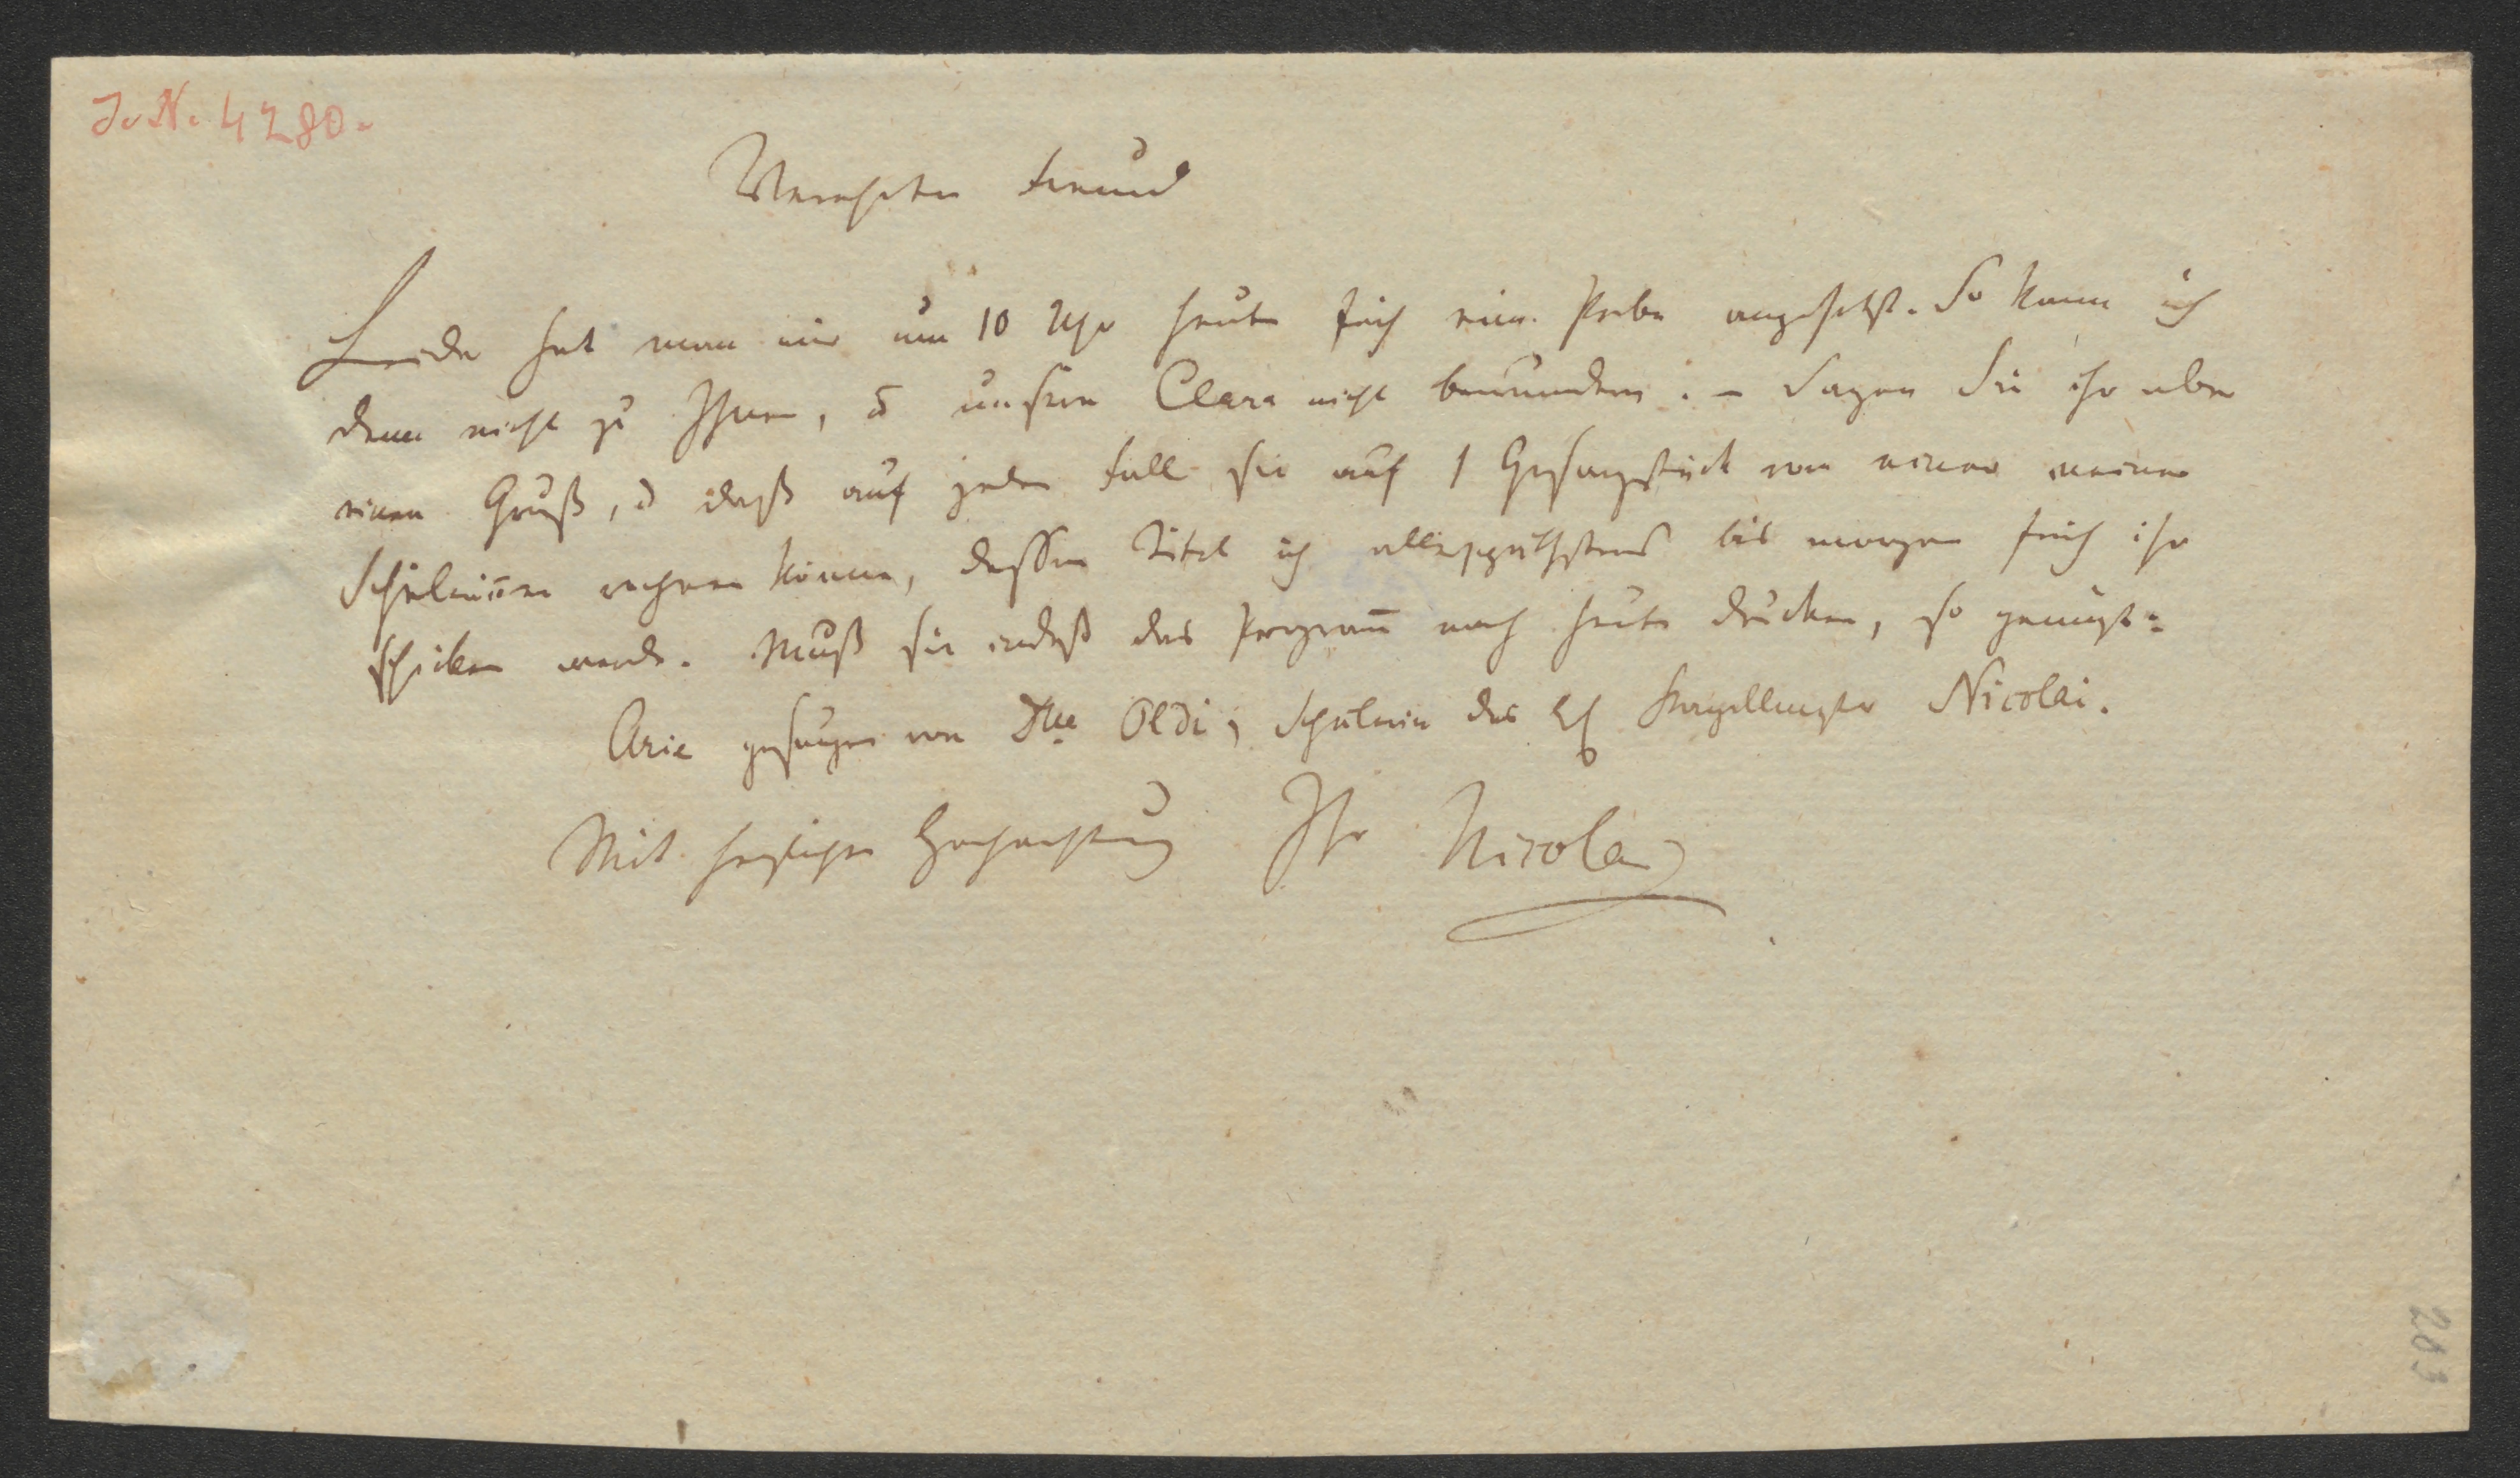 J. N. 4280.
Verehrter Freund
Leider hat man mir um 10 Uhr heute früh eine Probe angesetzt. So kann ich
denn nicht zu Ihnen, u unsere Clara nicht bewundern. – Sagen Sie ihr aber
einen Gruß, u daß auf jeden Fall sie auf 1 Gesangstück von einer meiner
Schülerin̅en rechnen könne, dessen Titel ich allerspäthstens bis morgen früh ihr
schicken werde. Muß sie indeß das Program̅ noch heute drucken, so genügt:
Arie gesungen von Dlle Oldi, Schülerin des H Kapellmster Nicolai.
Mit herzlicher Hochachtung Ihr Nicolai
203